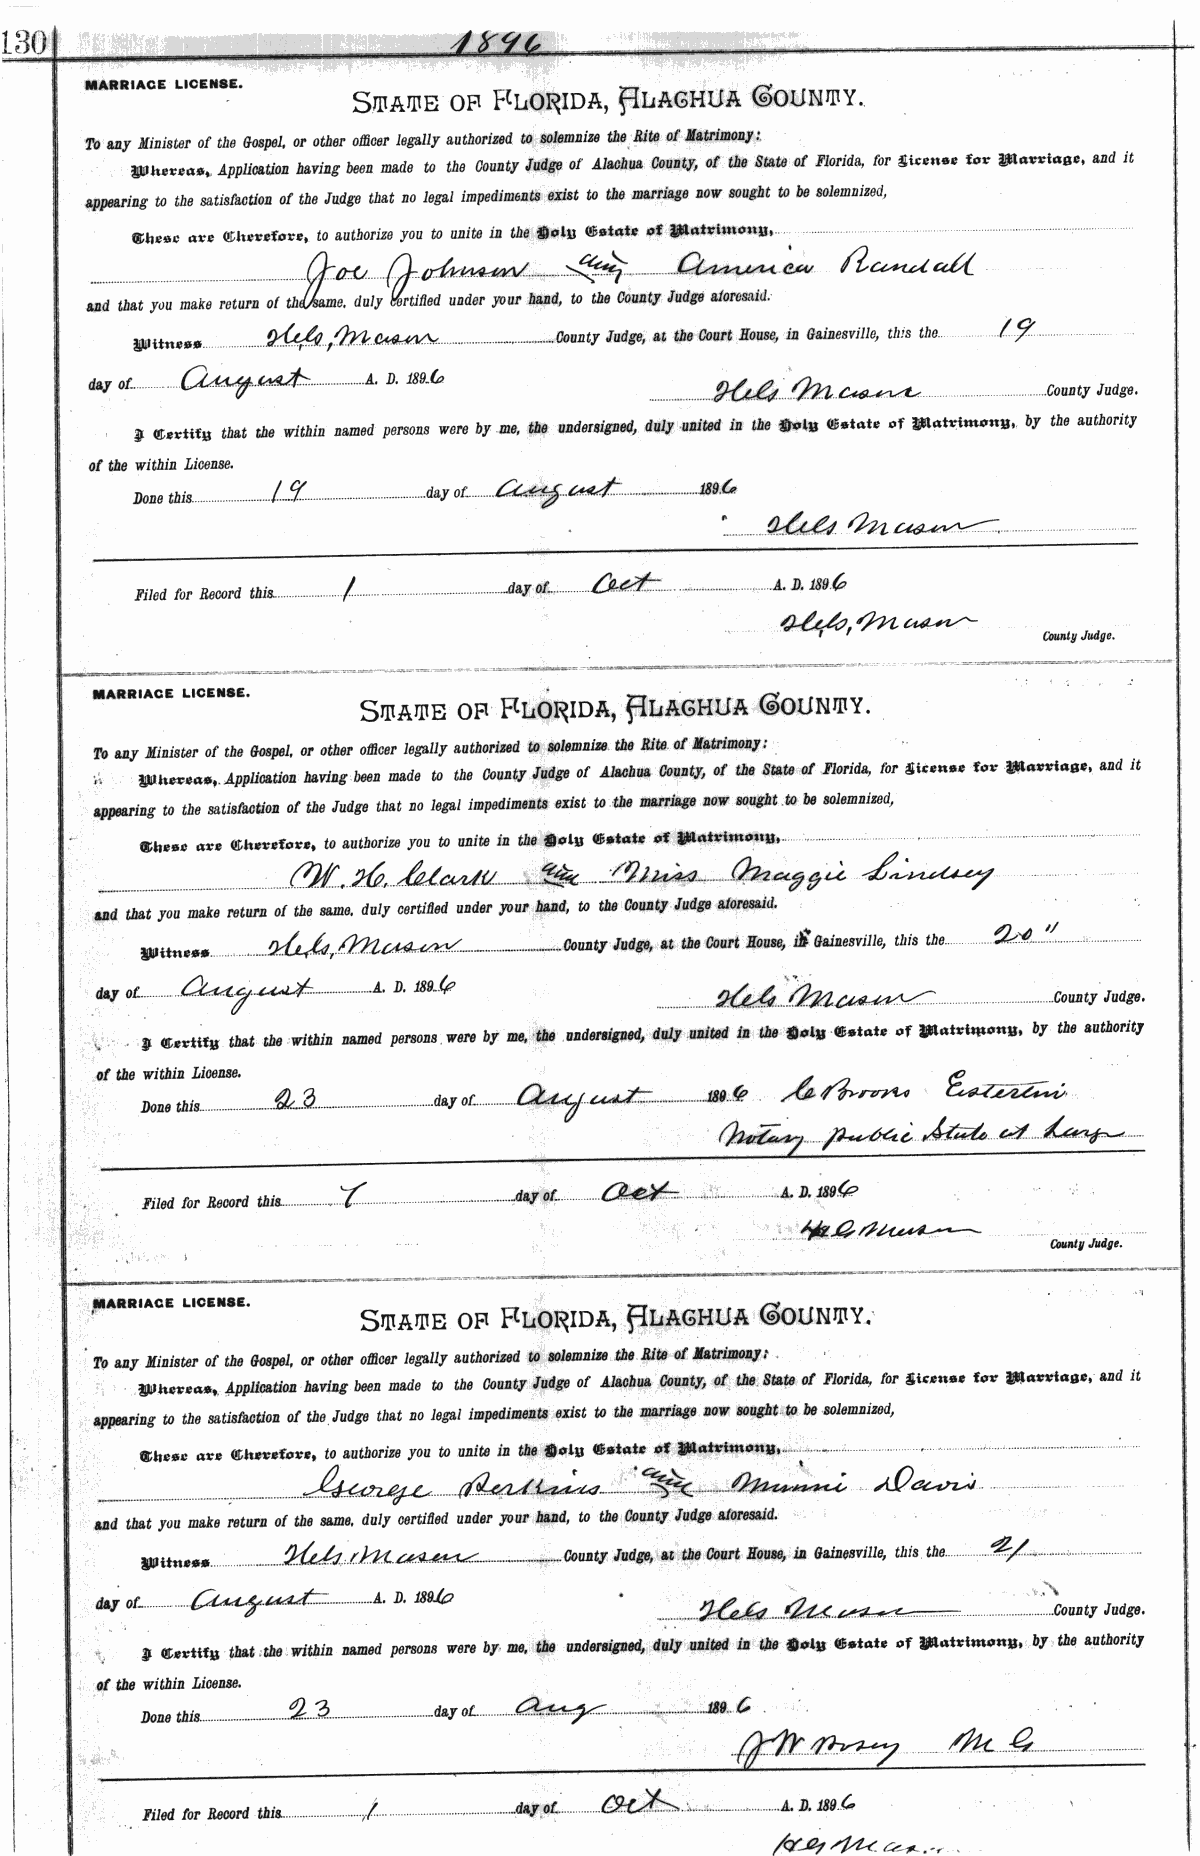 130
1896
MARRIAGE LICENSE.
STATE OF FLORIDA, ALACHUA COUNTY.
To any Minister of the Gospel, or other officer legally authorized to solemnize the Rite of Matrimony:
Whereas, Application having been made to the County Judge of Alachua County, of the State of Florida, for License for Marriage, and it
appearing to the satisfaction of the Judge that no legal impediments exist to the marriage now sought to be solemnized,
These are Therefore, to authorize you to unite in the Holy Estate of Matrimony,
Joe Johnson and America Randall
and that you make return of the same, duly certified under your hand, to the County Judge aforesaid.
Witness Mason County Judge, at the Court House, in Gainesville, this the 19
day of August A. D. 1896
Mason County Judge.
I Certify that the within named persons were by me, the undersigned, duly united in the Holy Estate of Matrimony, by the authority
of the within License.
Done this 19 day of August 1896
Mason
Filed for Record this 1 day of Oct A. D. 1896
Mason
County Judge.
MARRIAGE LICENSE.
STATE OF FLORIDA, ALACHUA COUNTY.
To any Minister of the Gospel, or other officer legally authorized to solemnize the Rite of Matrimony:
Whereas, Application having been made to the County Judge of Alachua County, of the State of Florida, for License for Marriage, and it
appearing to the satisfaction of the Judge that no legal impediments exist to the marriage now sought to be solemnized,
These are Therefore, to authorize you to unite in the Holy Estate of Matrimony,
W. H. Clark and Miss Maggie Lindsey
and that you make return of the same, duly certified under your hand, to the County Judge aforesaid.
Witness Mason County Judge, at the Court House, in Gainesville, this the 20"
day of August A. D. 1896
Mason County Judge.
I Certify that the within named persons were by me, the undersigned, duly united in the Holy Estate of Matrimony, by the authority
of the within License.
Done this 23 day of August 1896 C Brooks
Notary Public State at Large
Filed for Record this 7 day of Oct A. D. 1896
Mason
County Judge.
MARRIAGE LICENSE.
STATE OF FLORIDA, ALACHUA COUNTY.
To any Minister of the Gospel, or other officer legally authorized to solemnize the Rite of Matrimony:
Whereas, Application having been made to the County Judge of Alachua County, of the State of Florida, for License for Marriage, and it
appearing to the satisfaction of the Judge that no legal impediments exist to the marriage now sought to be solemnized,
These are Therefore, to authorize you to unite in the Holy Estate of Matrimony,
George Perkins and Minnie Davis
and that you make return of the same, duly certified under your hand, to the County Judge aforesaid.
Witness Mason County Judge, at the Court House, in Gainesville, this the 21
day of August A. D. 1896
Mason County Judge.
I Certify that the within named persons were by me, the undersigned, duly united in the Holy Estate of Matrimony, by the authority
of the within License.
Done this 23 day of Aug 1896
J W M G
Filed for Record this 1 day of Oct A. D. 1896